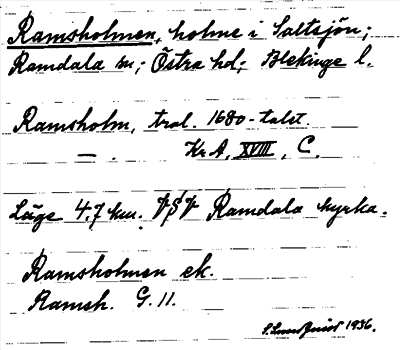 Ramsholmen, holme i Saltsjön;
Ramdala sn; Östra hd; Blekinge l.
Ramsholm, trol. 1680-talet.
— . Kr A, XVIII, C.
Läge 4,7 km. SSV Ramdala kyrka.
Ramsholmen ek.
Ramsh. G. 11.
1936.